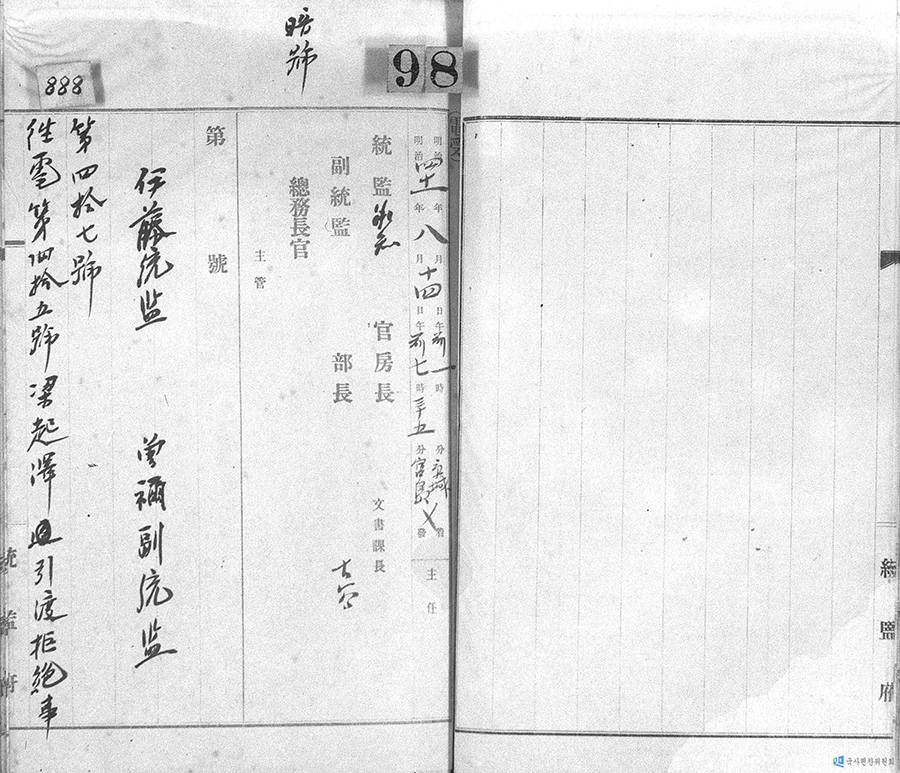 暗號
98
888
電受
明治 年 月 日午前一時 分京城着
明治四十一年八月十四日午前七時三十五分宮島發
主任
統監 官房長 文書課長
副統監 部長
總務長官
主管
第 號
伊藤統監 曾禰副統監
第四拾七號
往電第四拾五號梁起澤 引渡拒絶事
統監府
統監府
국사편찬위원회